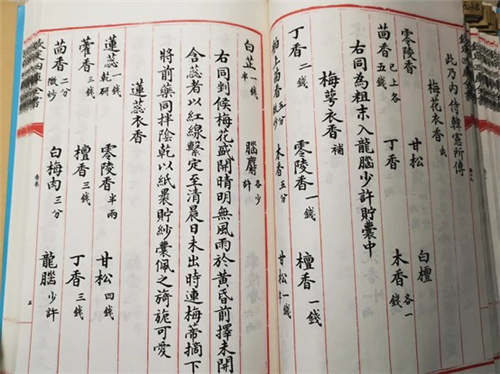 此乃内侍韓憲所傳
梅花衣香 武
零陵香 甘松 白檀
茴香 已上各五錢 丁香 木香 各一錢
右同為粗末入龍腦少許貯囊中
梅萼衣香 補
丁香 二錢 零陵香 一錢 檀香 一錢
舶上茴香 五分微炒 木香 五分 甘松 一錢半
白芷 一錢半 腦麝 各少許
右同剉候梅花盛開晴明無風雨於黄昏前擇未開
含蕊者以紅線繫定至清晨日未出時連梅蒂摘下
將前藥同拌陰乾以紙裹貯紗囊佩之旖旎可愛
蓮蕊衣香
蓮蕊 一錢乾研 零陵香 半兩 甘松 四錢
藿香 三錢 檀香 三錢 丁香 三錢
茴香 二分微炒 白梅肉 三分 龍腦 少許
欽定四庫全書